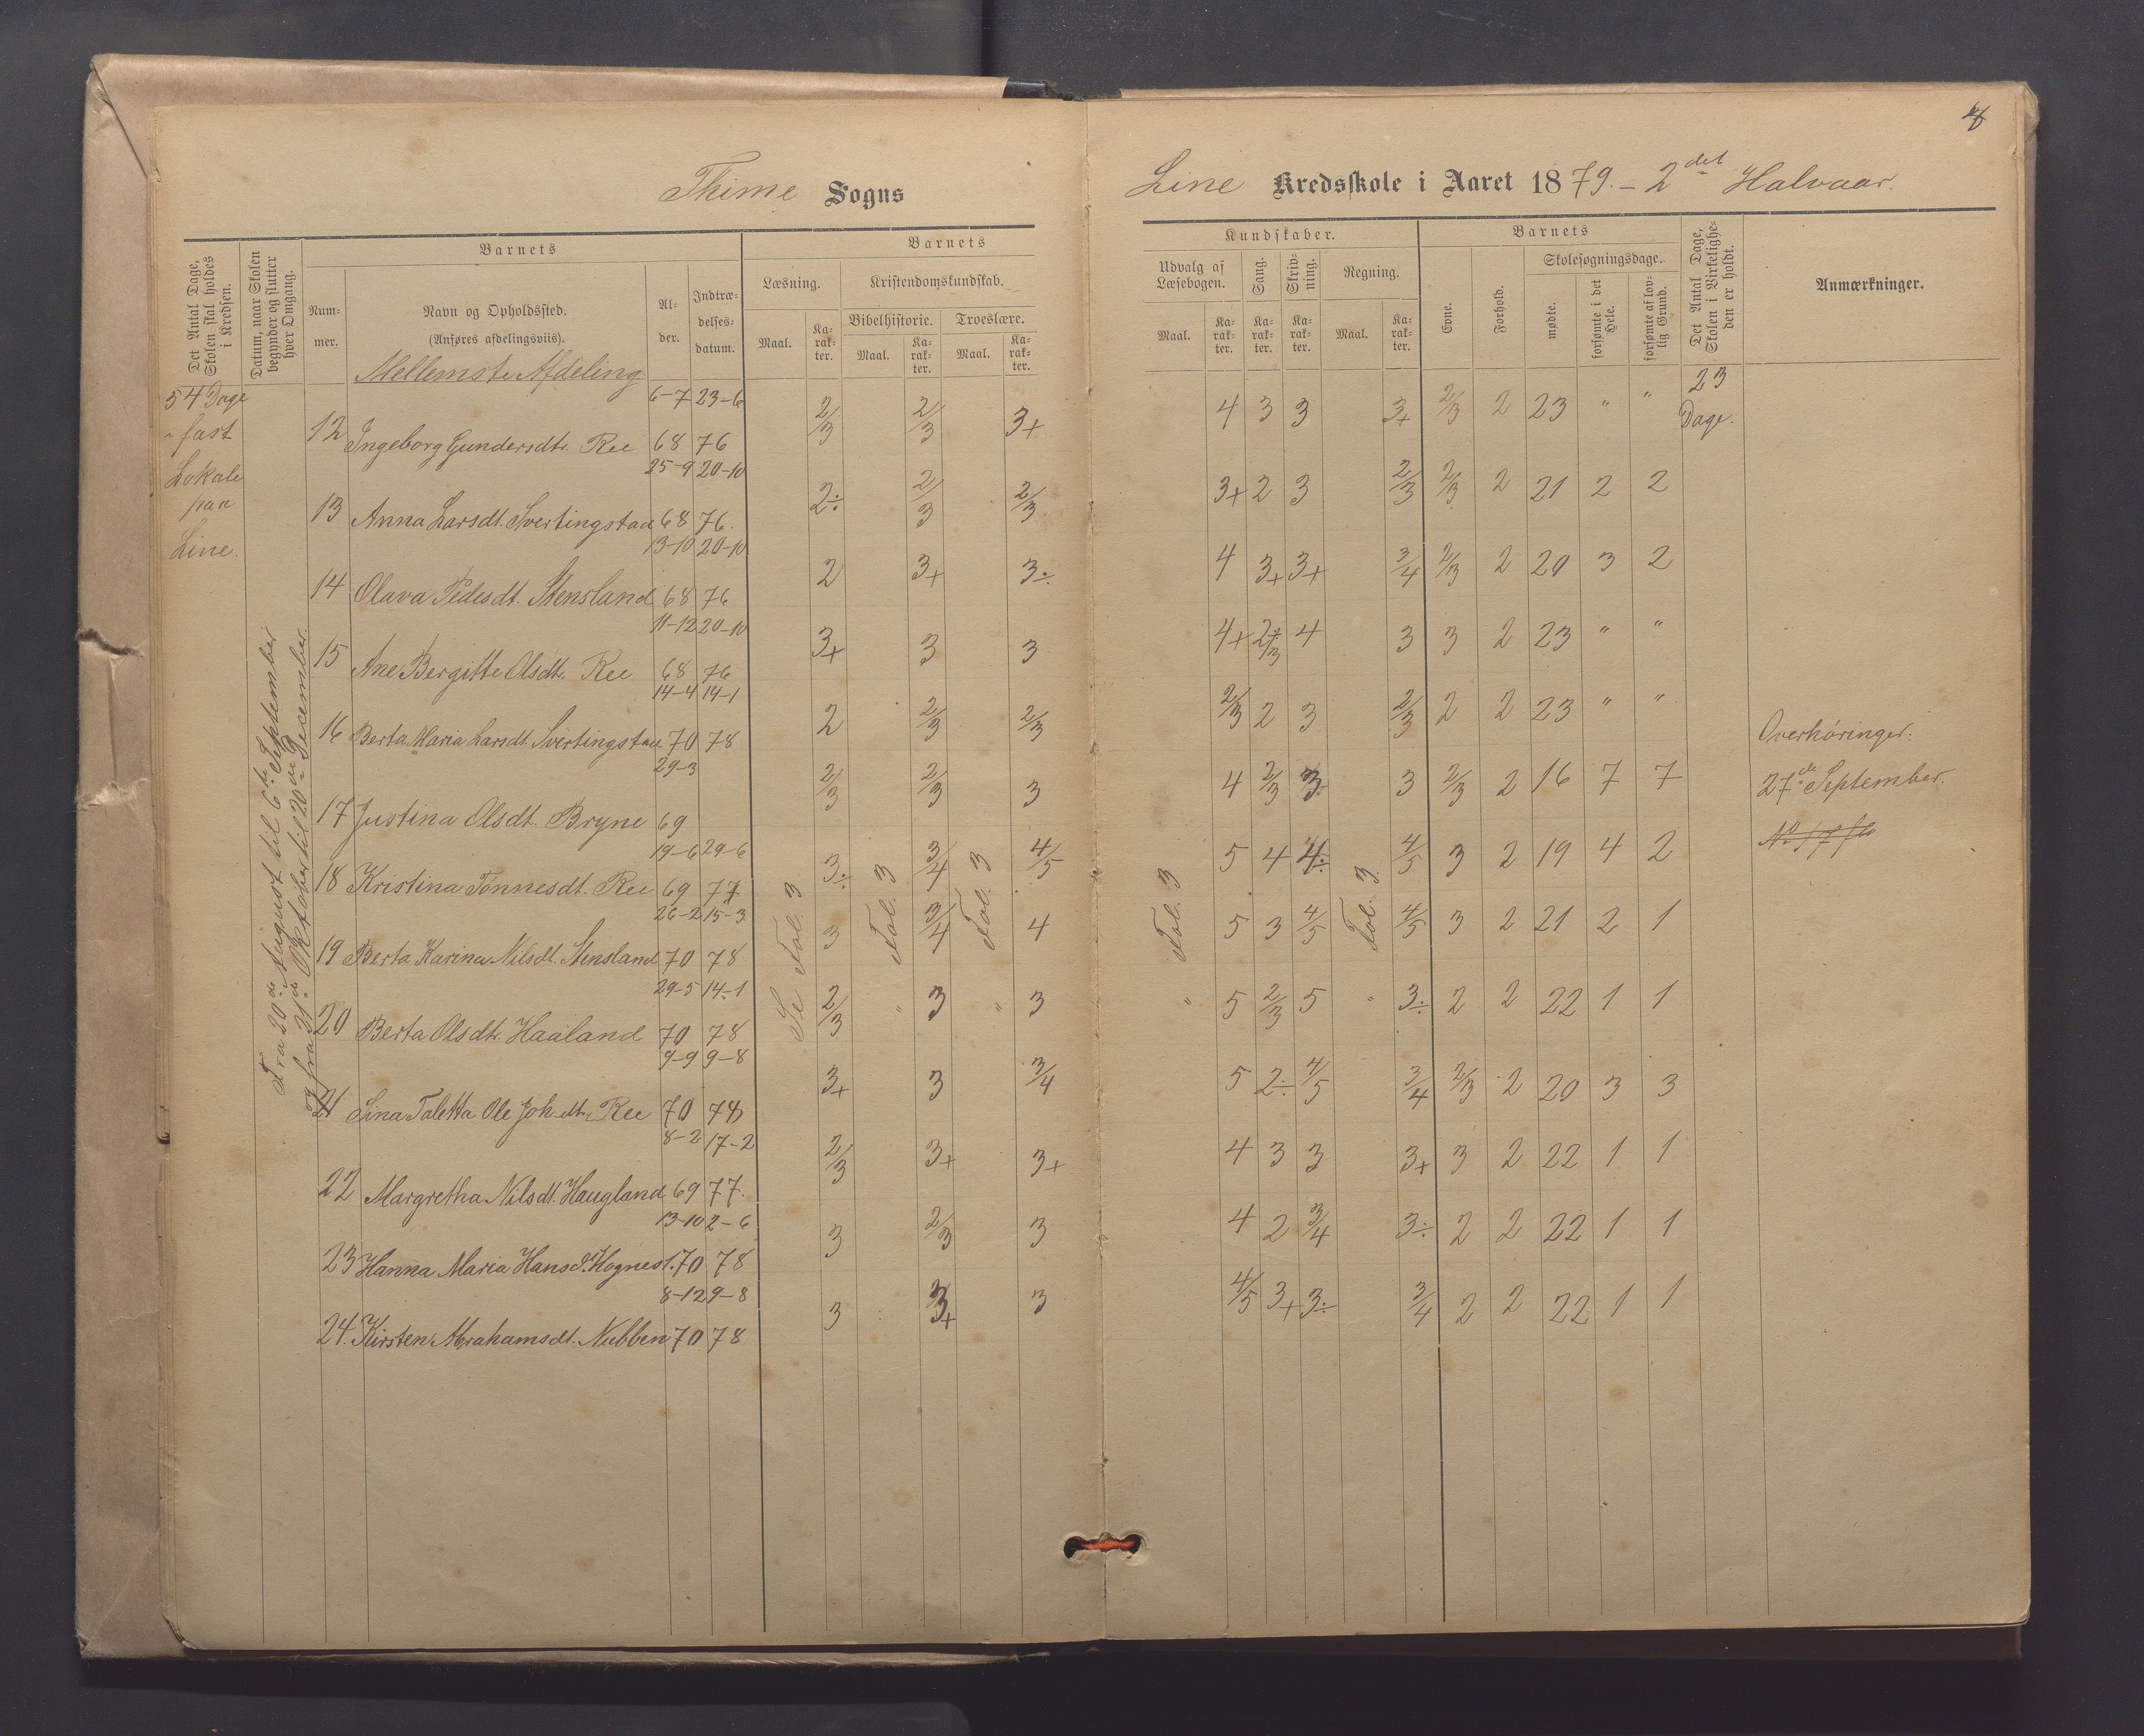 4
Thime Sogns
Line Kredsskole i Aaret 1879. – 2det Halvaar.
Det Antal Dage, Skolen skal holdes i Kredsen.
Datum, naar Skolen begynder og slutter hver Omgang.
Barnets
Num-mer.
Navn og Opholdssted.
(Anføres afdelingsviis).
Al-der.
Indtræ-delses-datum.
Barnets
Læsning.
Kristendomskundskab.
Bibelhistorie. Troeslære.
Maal. Ka-rak-ter. Maal. Ka-rak-ter. Maal. Ka-rak-ter.
Kundskaber.
Udvalg af Læsebogen.
Sang.
Skriv-ning.
Regning.
Maal. Ka-rak-ter. Ka-rak-ter. Ka-rak-ter. Maal. Ka-rak-ter.
Barnets
Evne.
Forhold.
Skolesøgningsdage.
mødte.
forsømte i det Hele.
forsømte af lov-lig Grund.
Det Antal Dage, Skolen i Virkelighe-den er holdt.
Anmærkninger.
Mellemste Afdeling.
54 Dage
i fast
Lokale
paa
Line.
Fra 20de August til 6te September
og fra 21de Oktober til 20de December.
23
Dage.
6–7 23–6
12 Ingeborg Gundersdtr. Ree 68 76 2/3 2/3 3+ 4 3 3 3+ 2/3 2 23 " "
25–9 20–10
13 Anna Larsdt. Svertingstad 68 76. 2÷ 2/3 2/3 3+ 2 3 2/3 2/3 2 21 2 2
13–10 20–10
14 Olava Pedesdt. Stensland 68 76 2 3+ 3÷ 4 3+ 3+ 3/4 2/3 2 20 3 2
11–12 20–10
15 Ane Bergitte Olsdt. Ree 68 76 3+ 3 3 4+ 2/3 4 3 3 2 23 " "
14–4 14–1
16 Berta Maria Larsdt. Svertingstad 70 78 2 2/3 2/3 2/3 2 3 2/3 2 2 23 " "
29–3
17 Justina Olsdt. Bryne 69 2/3 2/3 3 4 2/3 3 3 2/3 2 16 7 7
19–6 29–6
18 Kristina Tønnesdt. Ree 69 77 3÷ 3/4 4/5 5 4 4÷ 4/5 3 2 19 4 2
26–2 15–3
19 Berta Karina Nilsdt. Stensland 70 78 3 3/4 4 5 3 4/5 4/5 3 2 21 2 1
29–5 14–1
20 Berta Olsdt. Haaland 70 78 2/3 " 3 " 3 " 5 2/3 5 " 3÷ 2 2 22 1 1
9–9 9–8
21 Sina Taletta Ole Joh.dt. Ree 70 78 3+ 3 3/4 5 2÷ 4/5 3/4 2/3 2 20 3 3
8–2 17–2
22 Margretha Nilsdt. Haugland 69 77. 2/3 3+ 3+ 4 3 3 3+ 3 2 22 1 1
13–10 2–6
23 Hanna Maria Hansd. Hognest. 70 78 3 2/3 3 4 2 3/4 3÷ 2 2 22 1 1
8–12 9–8
24. Kirsten Abrahamsdt. Nubben 70 78 3 3+ 3 4/5 3+ 3÷ 3/4 2 2 22 1 1
Se Fol. 3
Fol. 3
Fol. 3
Fol. 3
Fol. 3.
Overhøringer:
27de September.